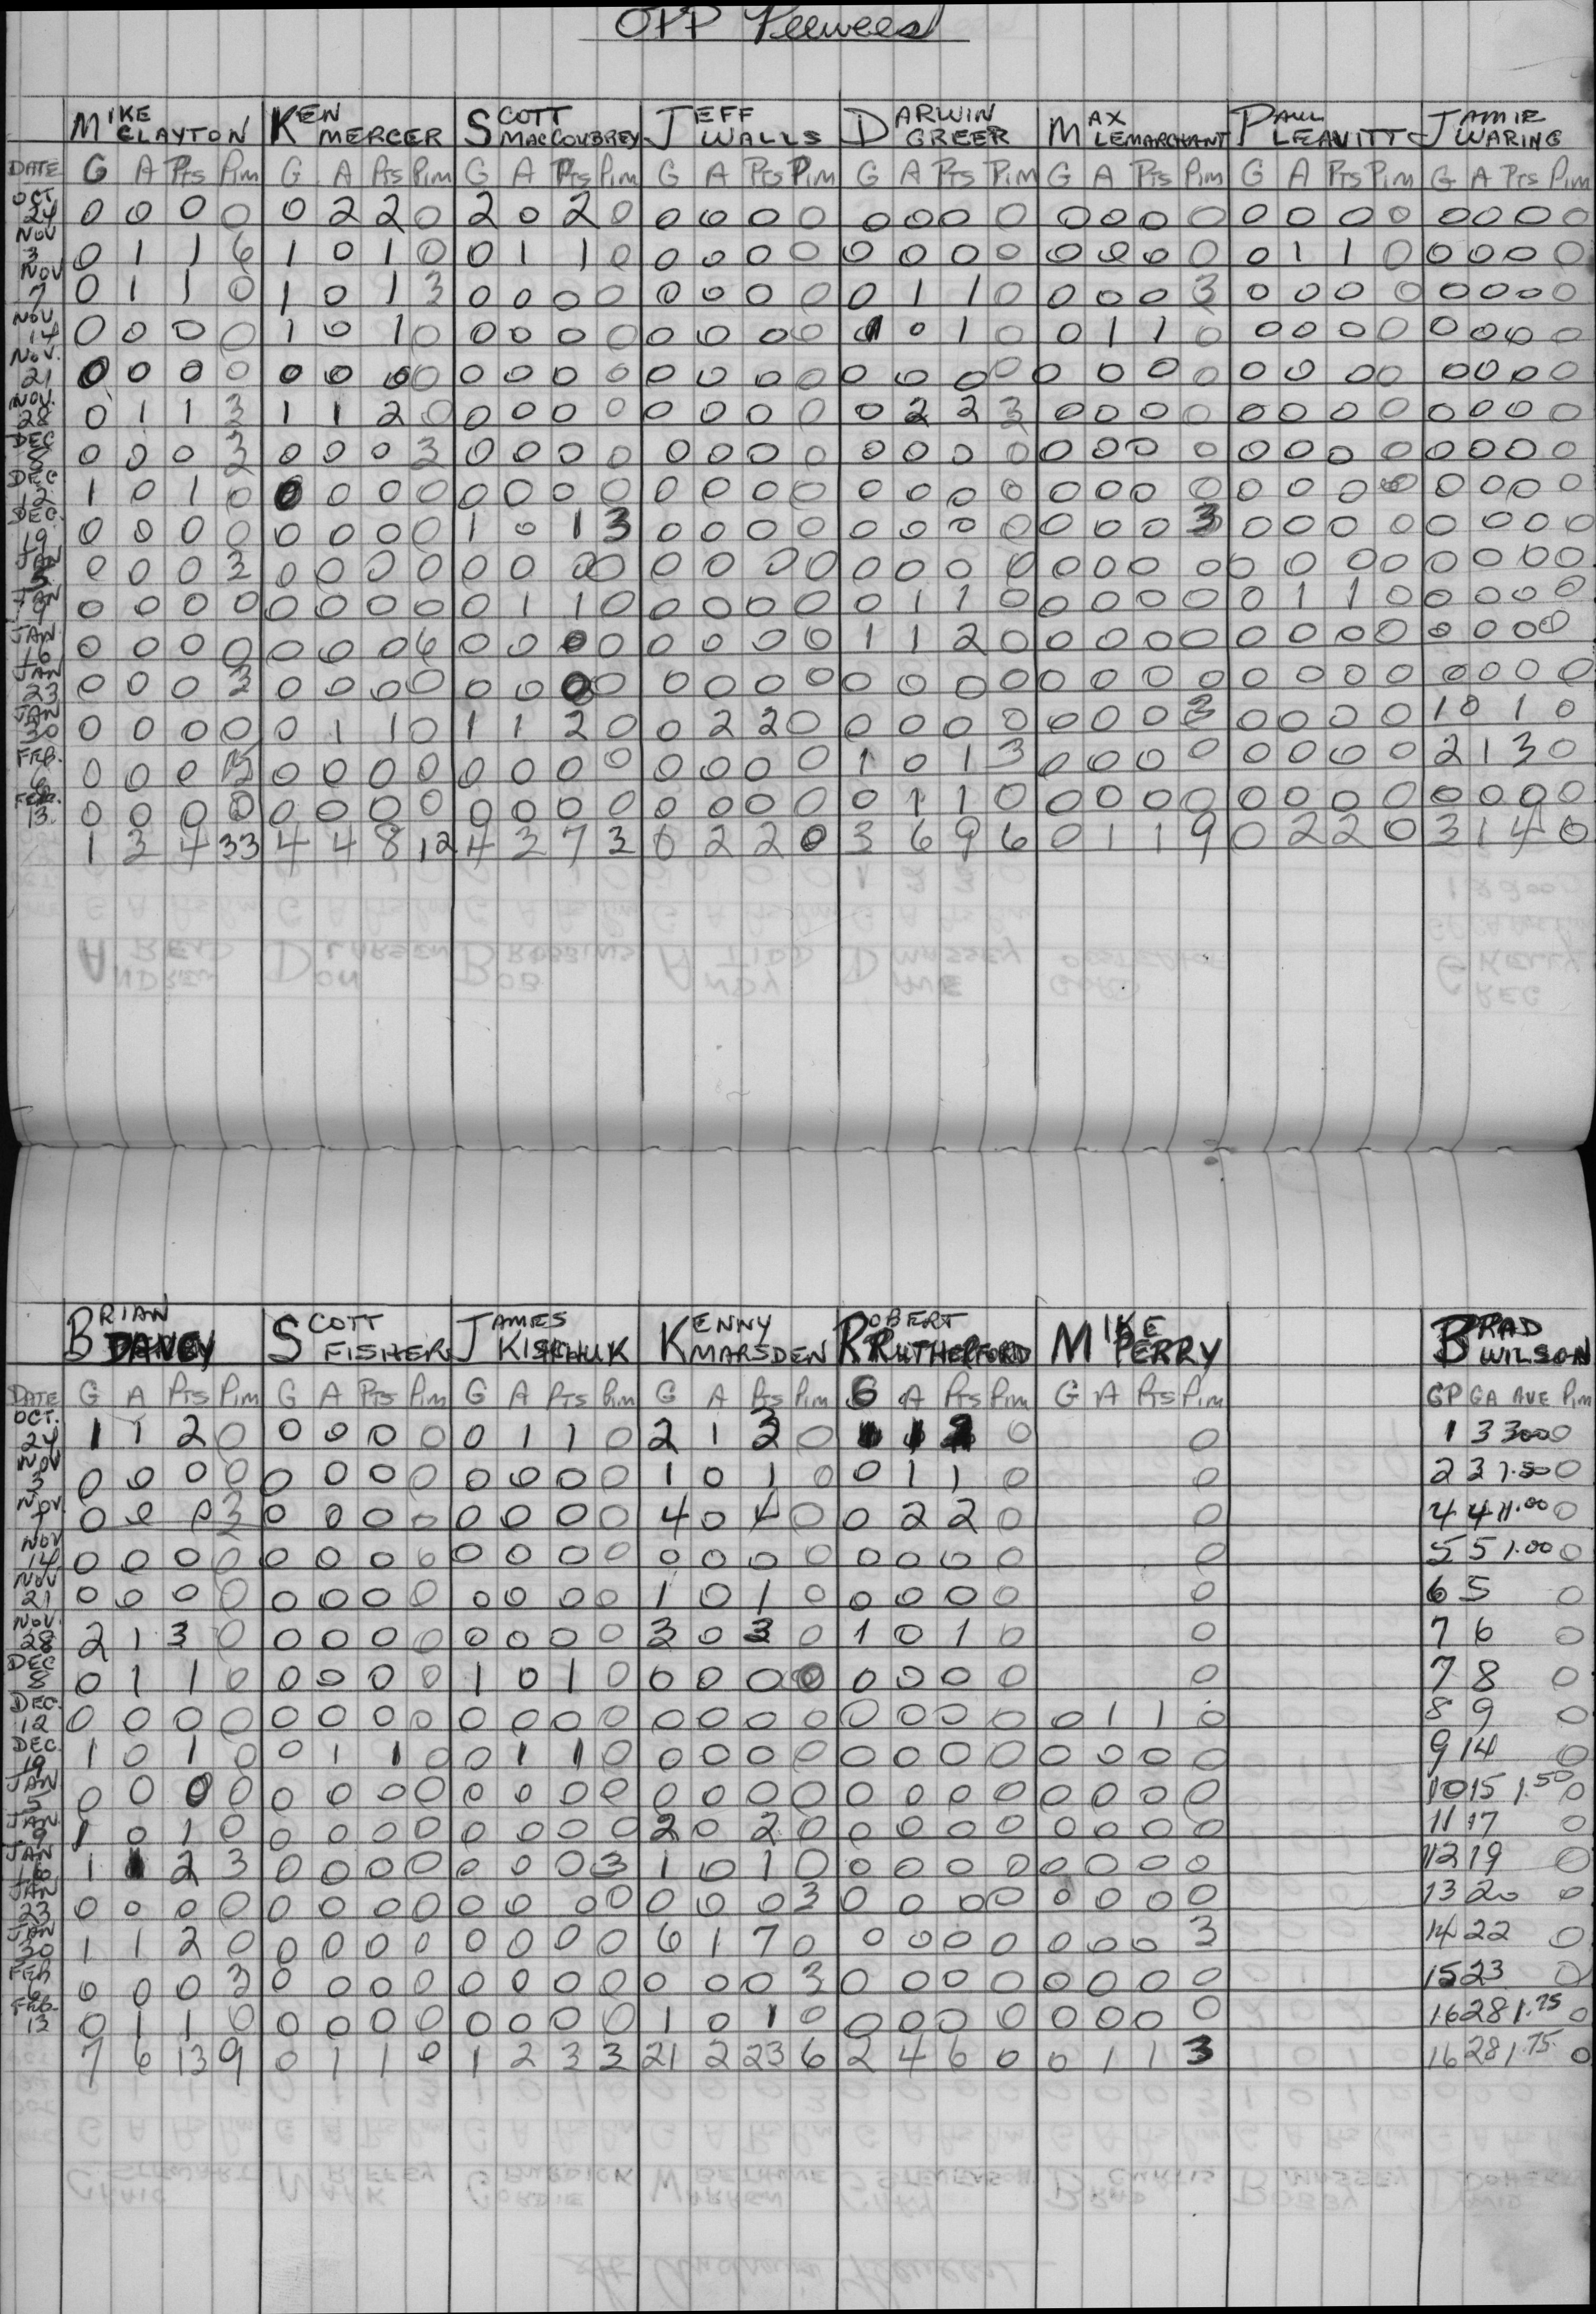 OPP Peewees
MIKE CLAYTON KEN MERCER SCOTT MACCOUBREY JEFF WALLS DARWIN GREER MAX LEMARCHANT PAUL LEAVITT JAMIE WARING
DATE G A Pts Pim G A Pts Pim G A Pts Pim G A Pts Pim G A Pts Pim G A Pts Pim G A Pts Pim G A Pts Pim
OCT 24 0 0 0 0 0 2 2 0 2 0 2 0 0 0 0 0 0 0 0 0 0 0 0 0 0 0 0 0 0 0 0 0
NOV 3 0 1 1 6 1 0 1 0 0 1 1 0 0 0 0 0 0 0 0 0 0 0 0 0 0 1 1 0 0 0 0 0
NOV 7 0 1 1 0 1 0 1 3 0 0 0 0 0 0 0 0 0 1 1 0 0 0 0 3 0 0 0 0 0 0 0 0
NOV. 14 0 0 0 0 1 0 1 0 0 0 0 0 0 0 0 0 1 0 1 0 0 1 1 0 0 0 0 0 0 0 0 0
NOV. 21 0 0 0 0 0 0 0 0 0 0 0 0 0 0 0 0 0 0 0 0 0 0 0 0 0 0 0 0 0 0 0 0
NOV. 28 0 1 1 3 1 1 2 0 0 0 0 0 0 0 0 0 0 2 2 3 0 0 0 0 0 0 0 0 0 0 0 0
DEC 5 0 0 0 3 0 0 0 3 0 0 0 0 0 0 0 0 0 0 0 0 0 0 0 0 0 0 0 0 0 0 0 0
DEC 12 1 0 1 0 0 0 0 0 0 0 0 0 0 0 0 0 0 0 0 0 0 0 0 0 0 0 0 0 0 0 0 0
DEC. 19 0 0 0 0 0 0 0 0 1 0 1 3 0 0 0 0 0 0 0 0 0 0 0 3 0 0 0 0 0 0 0 0
JAN 5 0 0 0 3 0 0 0 0 0 0 0 0 0 0 0 0 0 0 0 0 0 0 0 0 0 0 0 0 0 0 0 0
JAN 9 0 0 0 0 0 0 0 0 0 1 1 0 0 0 0 0 0 1 1 0 0 0 0 0 0 1 1 0 0 0 0 0
JAN. 16 0 0 0 0 0 0 0 6 0 0 0 0 0 0 0 0 1 1 2 0 0 0 0 0 0 0 0 0 0 0 0 0
JAN 23 0 0 0 3 0 0 0 0 0 0 0 0 0 0 0 0 0 0 0 0 0 0 0 0 0 0 0 0 0 0 0 0
JAN 30 0 0 0 0 0 1 1 0 1 1 2 0 0 2 2 0 0 0 0 0 0 0 0 3 0 0 0 0 1 0 1 0
FEB. 6 0 0 0 15 0 0 0 0 0 0 0 0 0 0 0 0 1 0 1 3 0 0 0 0 0 0 0 0 2 1 3 0
FEB. 13. 0 0 0 0 0 0 0 0 0 0 0 0 0 0 0 0 0 1 1 0 0 0 0 0 0 0 0 0 0 0 0 0
1 3 4 33 4 4 8 12 4 3 7 3 0 2 2 0 3 6 9 6 0 1 1 9 0 2 2 0 3 1 4 0
BRIAN DAVEY SCOTT FISHER JAMES KISCHUK KENNY MARSDEN ROBERT RUTHERFORD MIKE PERRY BRAD WILSON
DATE G A Pts Pim G A Pts Pim G A Pts Pim G A Pts Pim G A Pts Pim G A Pts Pim GP GA AVE Pim
OCT. 24 1 1 2 0 0 0 0 0 0 1 1 0 2 1 3 0 1 1 2 0 0 1 3 3.00 0
NOV 3 0 0 0 0 0 0 0 0 0 0 0 0 1 0 1 0 0 1 1 0 0 2 3 1.50 0
NOV. 7 0 0 0 3 0 0 0 0 0 0 0 0 4 0 4 0 0 2 2 0 0 4 4 1.00 0
NOV 14 0 0 0 0 0 0 0 0 0 0 0 0 0 0 0 0 0 0 0 0 0 5 5 1.00 0
NOV 21 0 0 0 0 0 0 0 0 0 0 0 0 1 0 1 0 0 0 0 0 0 6 5 0
NOV. 28 2 1 3 0 0 0 0 0 0 0 0 0 3 0 3 0 1 0 1 0 0 7 6 0
DEC 5 0 1 1 0 0 0 0 0 1 0 1 0 0 0 0 0 0 0 0 0 0 7 8 0
DEC. 12 0 0 0 0 0 0 0 0 0 0 0 0 0 0 0 0 0 0 0 0 0 1 1 0 8 9 0
DEC. 19 1 0 1 0 0 1 1 0 0 1 1 0 0 0 0 0 0 0 0 0 0 0 0 0 9 14 0
JAN 5 0 0 0 0 0 0 0 0 0 0 0 0 0 0 0 0 0 0 0 0 0 0 0 0 10 15 1.50 0
JAN 9 1 0 1 0 0 0 0 0 0 0 0 0 2 0 2 0 0 0 0 0 0 0 0 0 11 17 0
JAN 16 1 1 2 3 0 0 0 0 0 0 0 3 1 0 1 0 0 0 0 0 0 0 0 0 12 19 0
JAN 23 0 0 0 0 0 0 0 0 0 0 0 0 0 0 0 3 0 0 0 0 0 0 0 0 13 20 0
JAN 30 1 1 2 0 0 0 0 0 0 0 0 0 6 1 7 0 0 0 0 0 0 0 0 3 14 22 0
FEB 6 0 0 0 3 0 0 0 0 0 0 0 0 0 0 0 3 0 0 0 0 0 0 0 0 15 23 0
FEB. 13 0 1 1 0 0 0 0 0 0 0 0 0 1 0 1 0 0 0 0 0 0 0 0 0 16 28 1.75 0
7 6 13 9 0 1 1 0 1 2 3 3 21 2 23 6 2 4 6 0 0 1 1 3 16 28 1.75 0